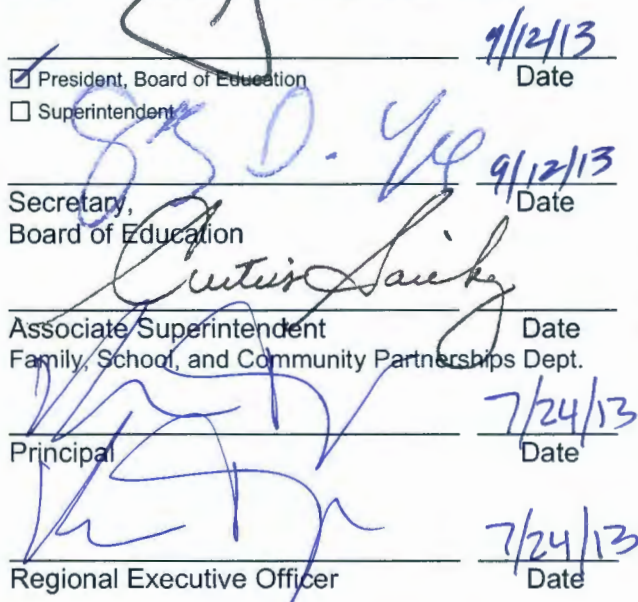 9/12/13
☑ President, Board of Education Date
☐ Superintendent
9/12/13
Secretary, Date
Board of Education
Curtiss Sarikey
Associate Superintendent Date
Family, School, and Community Partnerships Dept.
7/24/13
Principal Date
7/24/13
Regional Executive Officer Date